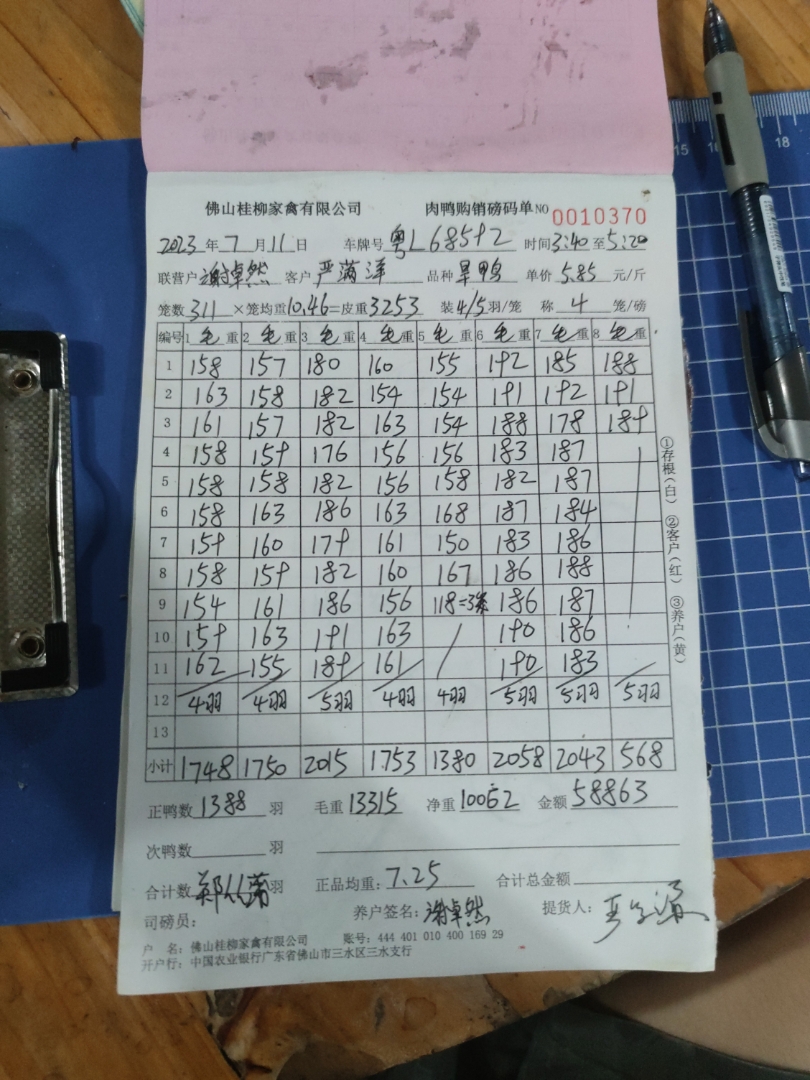 佛山桂柳家禽有限公司 肉鸭购销磅码单 NO 0010370
2023 年 7 月 11 日 车牌号 粤L68592 时间 3:40 至 5:20
联营户 谢卓然 客户 严满洋 品种 旱鸭 单价 5.85 元/斤
笼数 311 ×笼均重 10.46 =皮重 3253 装 4/5 羽/笼 称 4 笼/磅
编号 1 毛重 2 毛重 3 毛重 4 毛重 5 毛重 6 毛重 7 毛重 8 毛重
1 158 157 180 160 155 192 185 188
2 163 158 182 154 154 191 192 191
3 161 157 182 163 154 188 178 189
4 158 159 176 156 156 183 187
5 158 158 182 156 158 182 187
6 158 163 186 163 168 187 184
7 159 160 179 161 150 183 186
8 158 159 182 160 167 186 188
9 154 161 186 156 118=3笼 186 187
10 159 163 191 163 190 186
11 162 155 189 161 190 183
12 4羽 4羽 5羽 4羽 4羽 5羽 5羽 5羽
13
小计 1748 1750 2015 1753 1380 2058 2043 568
正鸭数 1388 羽 毛重 13315 净重 10062 金额 58863
次鸭数 羽
合计数 羽 正品均重: 7.25 合计总金额
司磅员: 养户签名: 谢卓然 提货人:
户 名: 佛山桂柳家禽有限公司 账号: 444 401 010 400 169 29
开户行: 中国农业银行广东省佛山市三水区三水支行
①存根(白) ②客户(红) ③养户(黄)
15
18